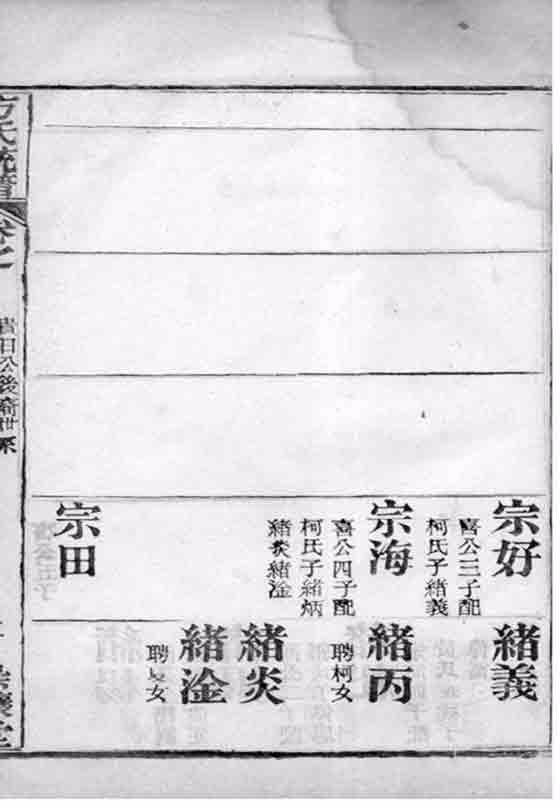 宗好
喜公三子配
柯氏子緒義
宗海
喜公四子配
柯氏子緒炳
緒炎緒淦
宗田
緒義
緒丙
聘柯女
緒炎
緒淦
聘夏女
方氏統譜
卷之
貴日公後裔世系